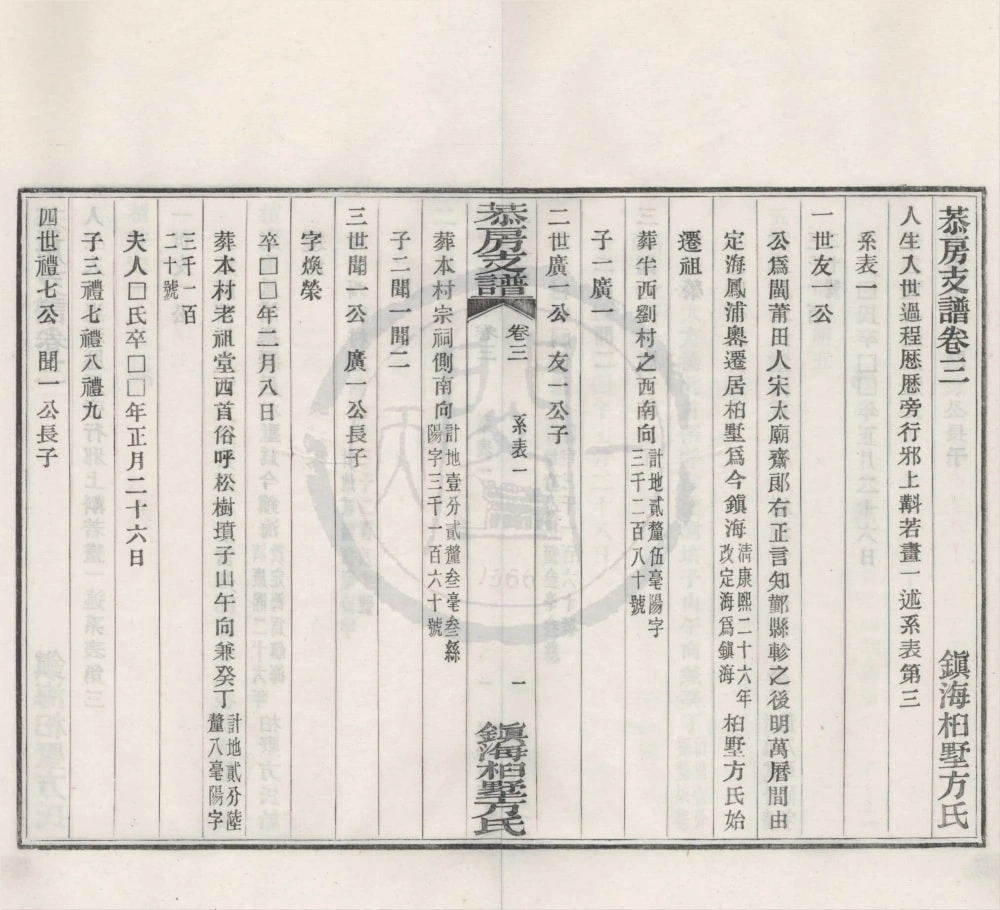 恭房支譜卷三　鎮海桕墅方氏
人生入世過程歷歷旁行邪上斠若畫一述系表第三
系表一
一世友一公
公爲閩莆田人宋太廟齋郎右正言知鄞縣軫之後明萬曆間由
定海鳳浦嶴遷居桕墅爲今鎮海清康熙二十六年改定海爲鎮海桕墅方氏始
遷祖
葬半西劉村之西南向計地貳釐伍毫陽字三千二百八十號
子一廣一
二世廣一公友一公子
恭房支譜　卷三　系表一　一　鎮海桕墅方氏
葬本村宗祠側南向計地壹分貳釐叁毫叁絲陽字三千一百六十號
子二聞一聞二
三世聞一公廣一公長子
字煥榮
卒□□年二月八日
葬本村老祖堂西首俗呼松樹墳子山午向兼癸丁計地貳分陸釐八毫陽字
三千一百二十號
夫人□氏卒□□年正月二十六日
子三禮七禮八禮九
四世禮七公聞一公長子